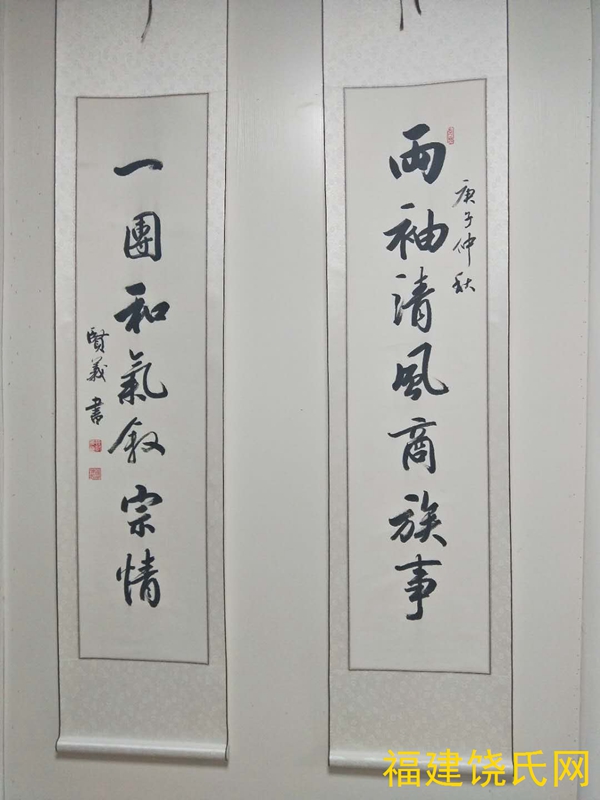 两袖清風商族事
庚子仲秋
一團和氣叙宗情
賢義書
福建饶氏网